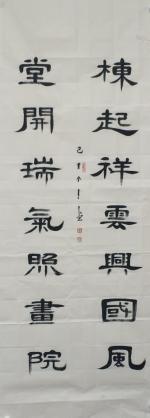 棟起祥雲興國風
堂開瑞氣照畫院